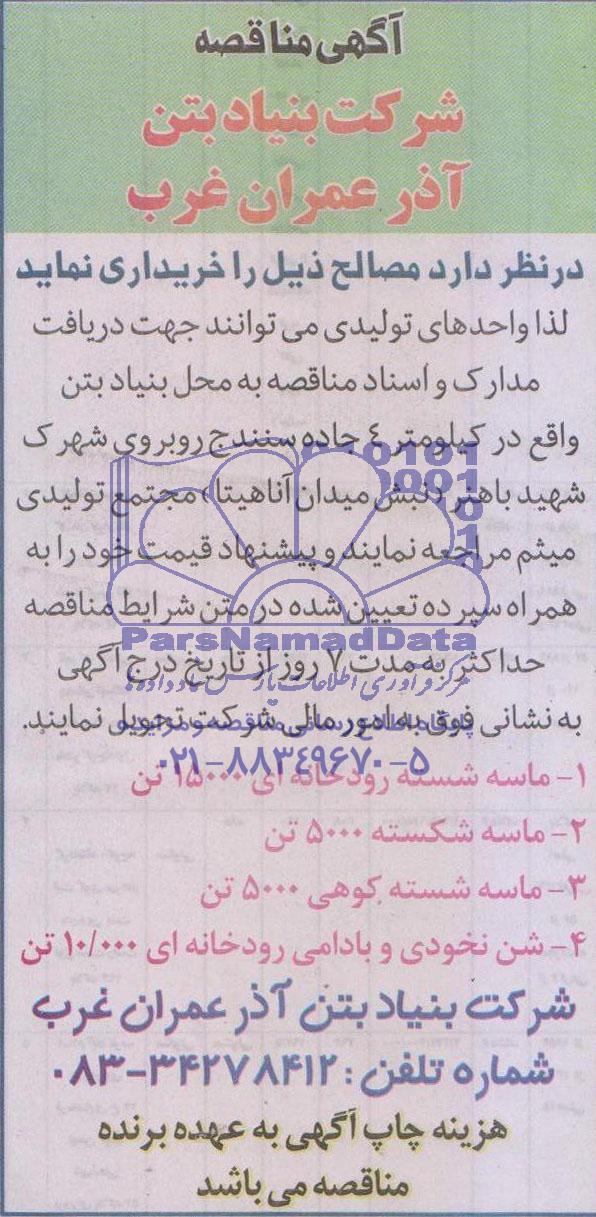 آگهی مناقصه
شرکت بنیاد بتن
آذر عمران غرب
درنظر دارد مصالح ذیل را خریداری نماید
لذا واحدهای تولیدی می توانند جهت دریافت
مدارک و اسناد مناقصه به محل بنیاد بتن
واقع در کیلومتر ٤ جاده سنندج روبروی شهرک
شهید باهنر (نبش میدان آناهیتا) مجتمع تولیدی
میثم مراجعه نمایند و پیشنهاد قیمت خود را به
همراه سپرده تعیین شده در متن شرایط مناقصه
ParsNamadData
حداکثر به مدت ۷ روز از تاریخ درج آگهی
مرکز فرآوری اطلاعات پارس نماد داده ها
به نشانی فوق به امور مالی شرکت تحویل نمایند.
۰۲۱-۸۸۳۴۹۶۷۰-۵
۱- ماسه شسته رودخانه ای ۱۵۰۰۰ تن
۲- ماسه شکسته ۵۰۰۰ تن
۳- ماسه شسته کوهی ۵۰۰۰ تن
۴- شن نخودی و بادامی رودخانه ای ۱۰/۰۰۰ تن
شرکت بنیاد بتن آذر عمران غرب
شماره تلفن : ۳۴۲۷۸۴۱۲-۰۸۳
هزینه چاپ آگهی به عهده برنده
مناقصه می باشد